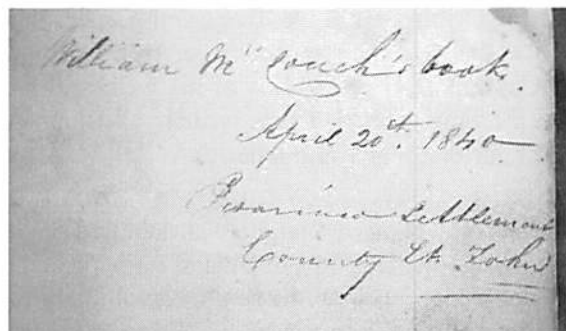 William Mc Couch's book.
April 20th. 1840
Pisarinco Settlement
County St. John